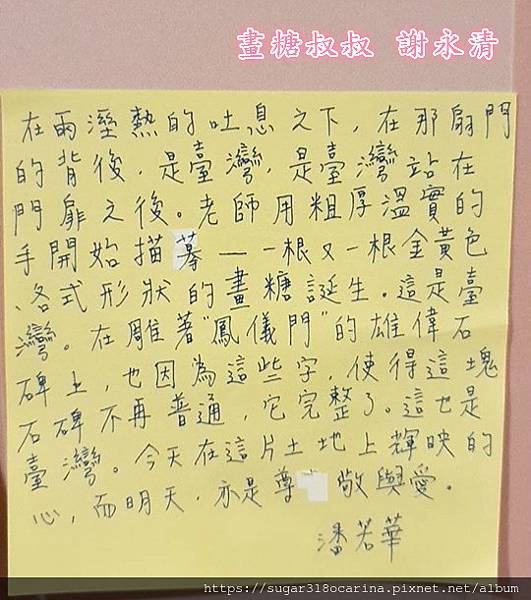 畫糖叔叔 謝永清
在雨溼熱的吐息之下，在那扇門
的背後，是臺灣，是臺灣站在
門扉之後。老師用粗厚溫實的
手開始描摹——一根又一根金黃色
、各式形狀的畫糖誕生。這是臺
灣。在雕著"鳳儀門"的雄偉石
碑上，也因為這些字，使得這塊
石碑不再普通，它完整了。這也是
臺灣。今天在這片土地上輝映的
心，而明天，亦是尊敬與愛。
潘若華
https://sugar318ocarina.pixnet.net/album